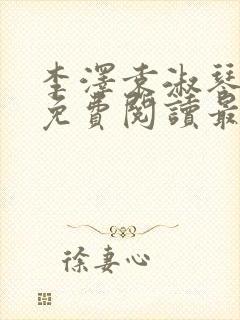 李澤袁淑琴
免費閱讀最
徐妻心